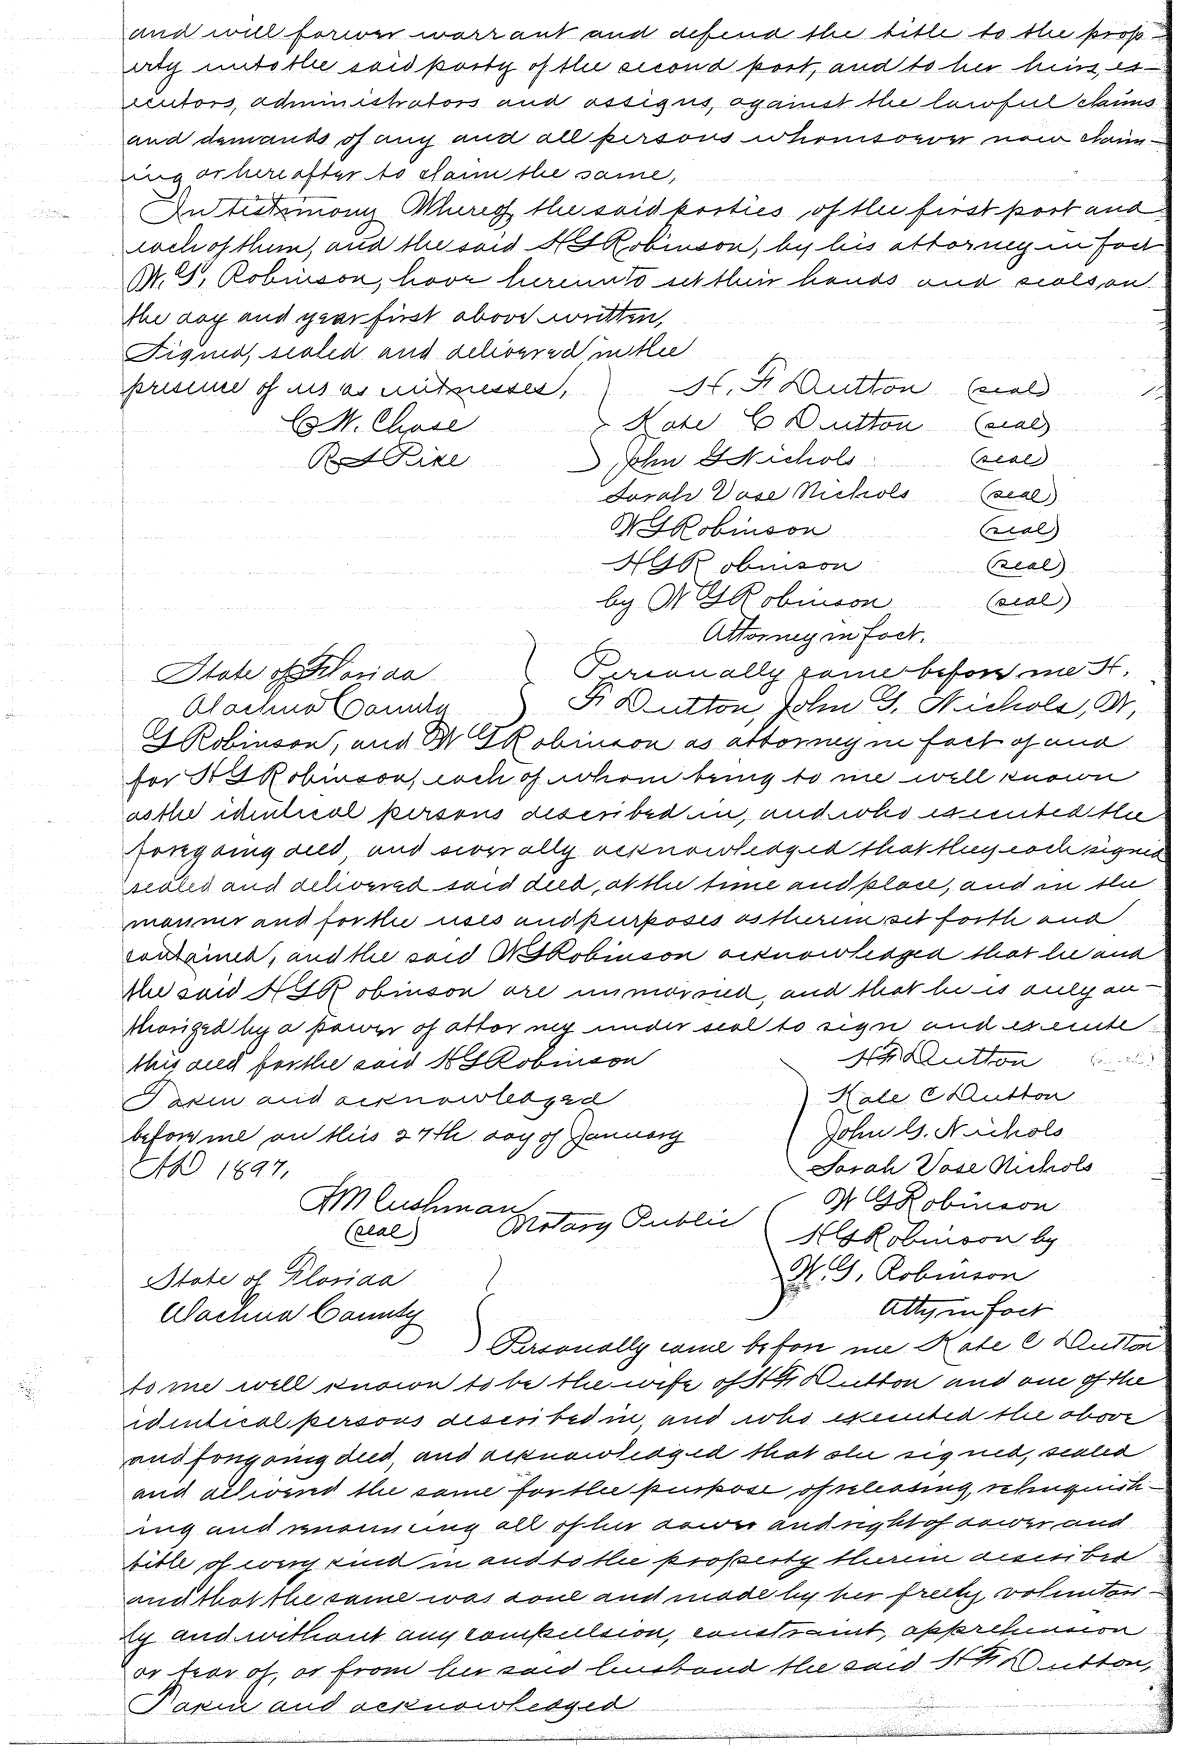 and will forever warrant and defend the title to the prop-
erty unto the said party of the second part, and to her heirs, ex-
ecutors, administrators and assigns, against the lawful claims
and demands of any and all persons whomsoever now claim-
ing or hereafter to claim the same,
In testimony Whereof the said parties of the first part and
each of them, and the said H G Robinson, by his attorney in fact
W. G. Robinson, have hereunto set their hands and seals on
the day and year first above written,
Signed, sealed and delivered in the
presence of us as witnesses, H. F. Dutton (seal)
C W. Chase Kate C Dutton (seal)
R S Pike John G Nichols (seal)
Sarah Vose Nichols (seal)
W G Robinson (seal)
H G Robinson (seal)
by W G Robinson (seal)
Attorney in fact.
State of Florida Personally came before me H.
Alachua County F. Dutton, John G. Nichols, W,
G Robinson, and W G Robinson as attorney in fact of and
for H G Robinson, each of whom being to me well known
as the identical persons described in, and who executed the
foregoing deed, and severally acknowledged that they each signed
sealed and delivered said deed, at the time and place, and in the
manner and for the uses and purposes as therein set forth and
contained, and the said W G Robinson acknowledged that he and
the said H G Robinson are unmarried, and that he is duly au-
thorized by a power of attorney under seal to sign and execute
this deed for the said H G Robinson H F Dutton
Taken and acknowledged Kate C Dutton
before me on this 27th day of January John G. Nichols
AD 1897, Sarah Vose Nichols
F M Cushman W G Robinson
(seal) Notary Public H G Robinson by
State of Florida W. G. Robinson
Alachua County Atty in fact
Personally came before me Kate C Dutton
to me well known to be the wife of H F Dutton and one of the
identical persons described in, and who executed the above
and foregoing deed, and acknowledged that she signed, sealed
and delivered the same for the purpose of releasing, relinquish-
ing and renouncing all of her dower and right of dower and
title of every kind in and to the property therein described
and that the same was done and made by her freely, voluntari-
ly and without any compulsion, constraint, apprehension
or fear of, or from her said husband the said H F Dutton,
Taken and acknowledged